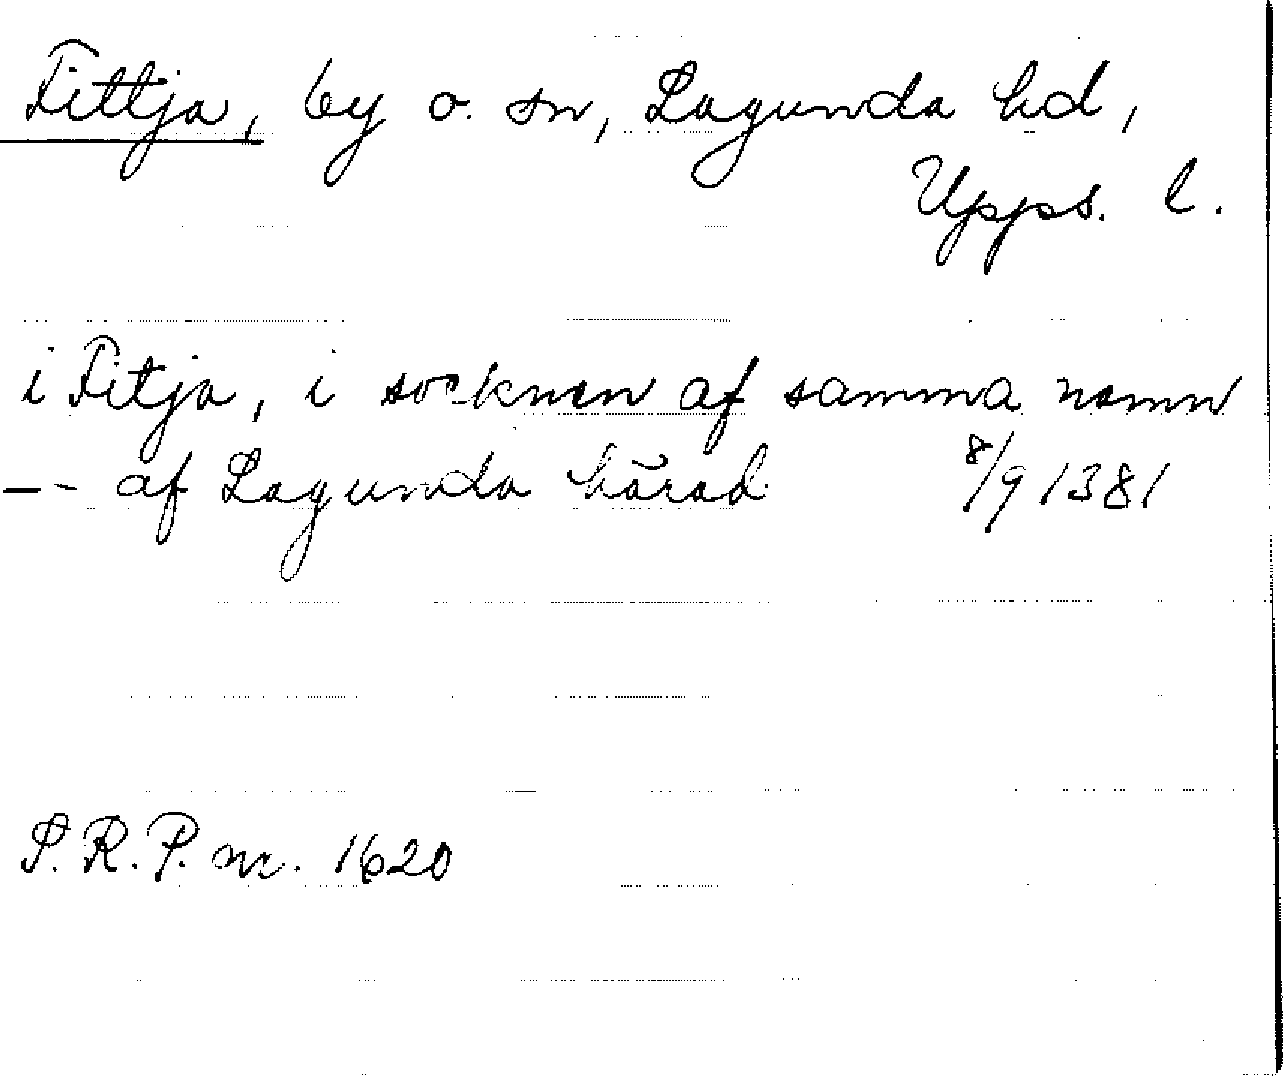 Fittja, by o. sn, Lagunda hd,
Upps. l.
i Fitja, i socknen af samma namn
-- af Lagunda härad 8/9 1381
S.R.P. nr. 1620